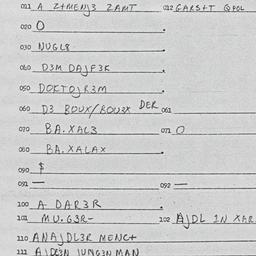 011 A Z+MENJ3 ZAMT 012 GARS+T QPOL
020 O
030 NUGL8
040 D3M DAJF3K
050 DOKTOJR3M
060 D3 BOUX/BOU3X DER 061
070 BA.XAL3 071 O
080 BA.XALAX
090 $
091 — 092 —
100 A DAR3R
101 MU.G3R- 102 AJDL IN XAR
110 ANAJDL3R MENC+
111 AJDL3N JUNG3N MAN